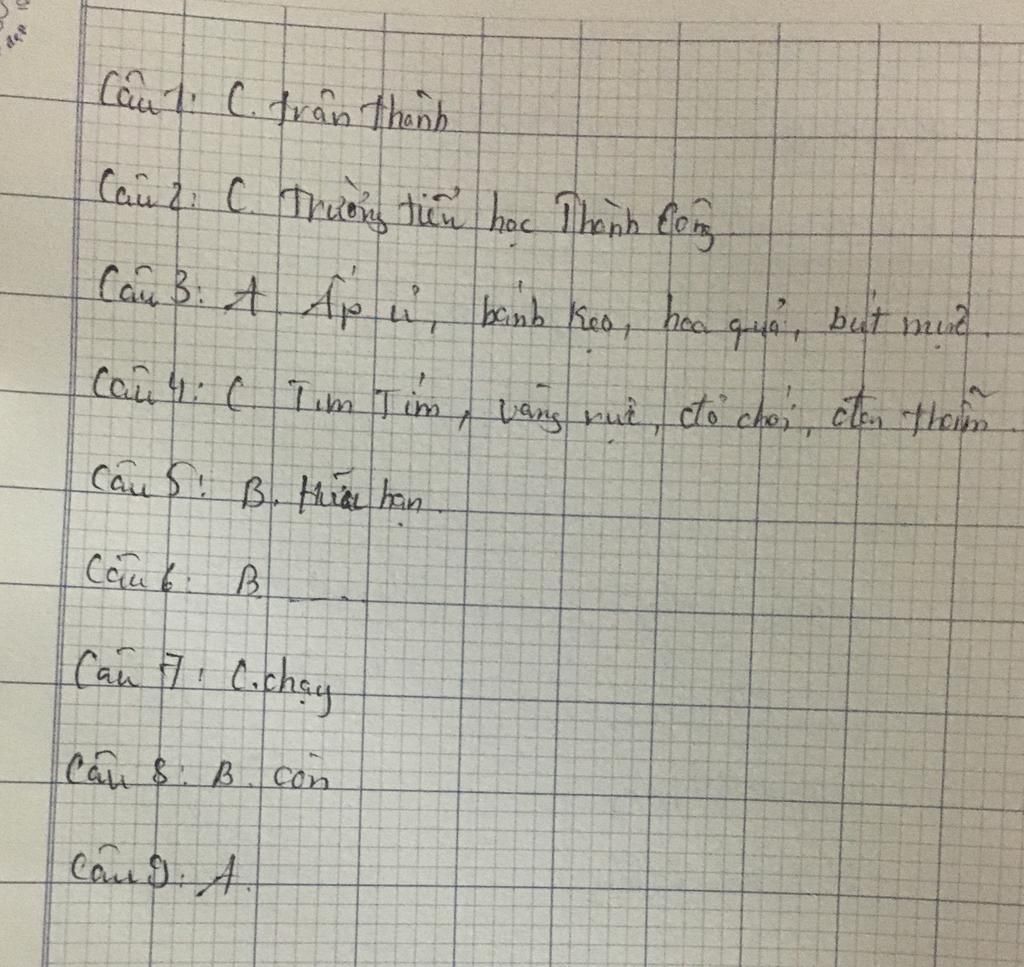 Câu 1: C. trấn thành
Câu 2: C. Trường tiểu học Thành Công
Câu 3: A Ấp ủ, bánh kẹo, hoa quả, bút mực.
Câu 4: C Tim Tím, vâng, đồ chơi, thẫm.
Câu 5: B. Hữu hạn.
Câu 6: B
Câu 7: C. chạy
Câu 8: B. còn
Câu 9: A.